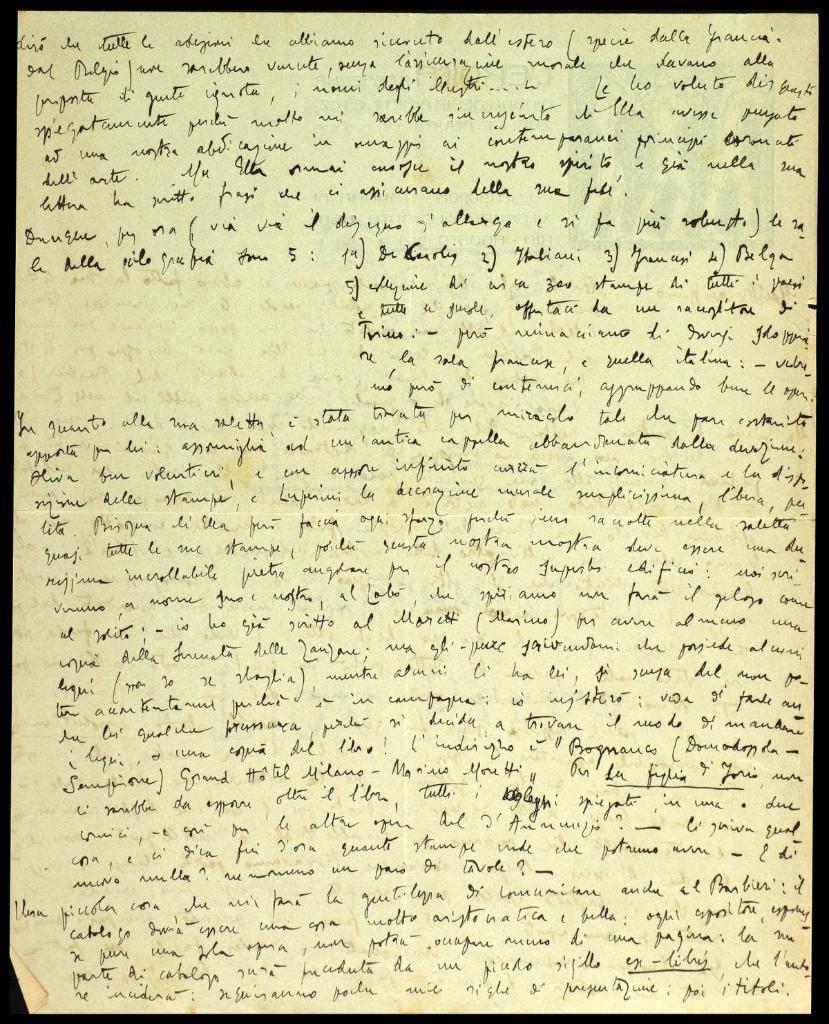 dirò che tutte le adesioni che abbiamo ricevuto dall'estero (specie dalla Francia.
dal Belgio) non sarebbero venute, senza l'assicurazione morale che davano alla
proposta di gente ignota, i nomi degli illustri..... Le ho voluto dir questo
spiegatamente perché molto mi sarebbe rincresciuto ch'Ella avesse pensato
ad una nostra abdicazione in omaggio ai contemporanei principi coronati
dell'arte. Ma Ella ormai conosce il nostro spirito, e già nella sua
lettera ha scritto frasi che ci assicurano della sua fede.
Dunque, per ora (via via il disegno s'allarga e si fa più robusto) le sa-
le della xilografia sono 5: 1a) De Karolis 2) Italiani 3) Francesi 4) Belga
5) collezione di circa 300 stampe di tutti i paesi
e tutte le scuole, offertaci da un raccoglitore di
Torino: – però minacciano di doversi sdoppia-
re la sala francese, e quella italiana: – vedre-
mo però di contenerci, aggruppando bene le opere.
In quanto alla sua saletta, è stata trovata per miracolo tale che pare costruita
apposta per lei: assomiglia ad un'antica cappella abbandonata dalla devozione.
Oliva ben volentieri, e con amore infinito curerà l'incorniciatura e la dispo-
sizione delle stampe, e Luperini la decorazione murale semplicissima, libera, pu-
lita. Bisogna ch'Ella però faccia ogni sforzo perché sieno raccolte nella saletta
quasi tutte le sue stampe, poiché questa nostra mostra deve essere una du-
rissima incrollabile pietra angolare per il nostro superbo edificio: noi scri-
veremo, a nome suo e nostro, al Labò, che speriamo non farà il geloso come
al solito; – io ho già scritto al Moretti (Marino) per avere almeno una
copia della Serenata delle Zanzare; ma egli pure scrivendomi che possiede alcuni
legni (non so se sbaglia) mentre alcuni li ha lei, si scusa del non po-
ter accontentarmi perché è in campagna: io insisterò: veda di fare an-
che lei qualche pressione, perché si decida a trovare il modo di mandare
i legni, o una copia del libro! L'indirizzo è "Bognanco (Domodossola –
Sempione) Grand Hôtel Milano – Marino Moretti". Per La figlia di Jorio, non
ci sarebbe da esporre, oltre il libro, tutti i spiegati, in una o due
cornici, – e così per le altre opere del D'Annunzio? — Ci scriva qual
cosa, e ci dica fin d'ora quante stampe crede che potremo avere. – E di
nuovo nulla? nemmeno un paio di tavole? –
Una piccola cosa che mi farà la gentilezza di comunicare anche al Barbieri: il
catalogo dovrà essere una cosa molto aristocratica e bella: ogni espositore, esponesse
se pure una sola opera, non potrà occupare meno di una pagina: la sua
parte di catalogo sarà preceduta da un piccolo sigillo ex-libris che l'auto-
re inciderà: seguiranno poche mie righe di presentazione: poi i titoli.